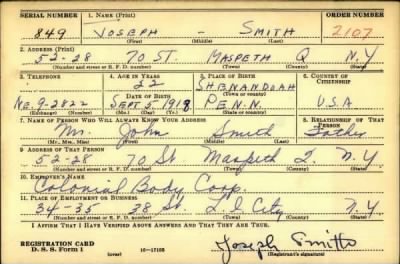 SERIAL NUMBER 1. NAME (Print) ORDER NUMBER
849 JOSEPH - SMITH 2107
(First) (Middle) (Last)
2. ADDRESS (Print)
52-28 70 ST. MASPETH Q N.Y
(Number and street or R. F. D. number) (Town) (County) (State)
3. TELEPHONE 4. AGE IN YEARS 5. PLACE OF BIRTH 6. COUNTRY OF CITIZENSHIP
22 SHENANDOAH
DATE OF BIRTH
NE.9-2822 SEPT 5 1918 PENN. U.S.A
(Exchange) (Number) (Mo.) (Day) (Yr.) (State or country)
7. NAME OF PERSON WHO WILL ALWAYS KNOW YOUR ADDRESS 8. RELATIONSHIP OF THAT PERSON
Mr. John Smith Father
(Mr., Mrs., Miss) (First) (Middle) (Last)
9. ADDRESS OF THAT PERSON
52-28 70 St. Maspeth Q. N.Y
(Number and street or R. F. D. number) (Town) (County) (State)
10. EMPLOYER'S NAME
Colonial Body Coop.
11. PLACE OF EMPLOYMENT OR BUSINESS
34-35 38 St. L.I City N.Y
(Number and street or R. F. D. number) (Town) (County) (State)
I AFFIRM THAT I HAVE VERIFIED ABOVE ANSWERS AND THAT THEY ARE TRUE.
REGISTRATION CARD
D. S. S. Form 1 (over) 16-17105 Joseph Smith
(Registrant's signature)